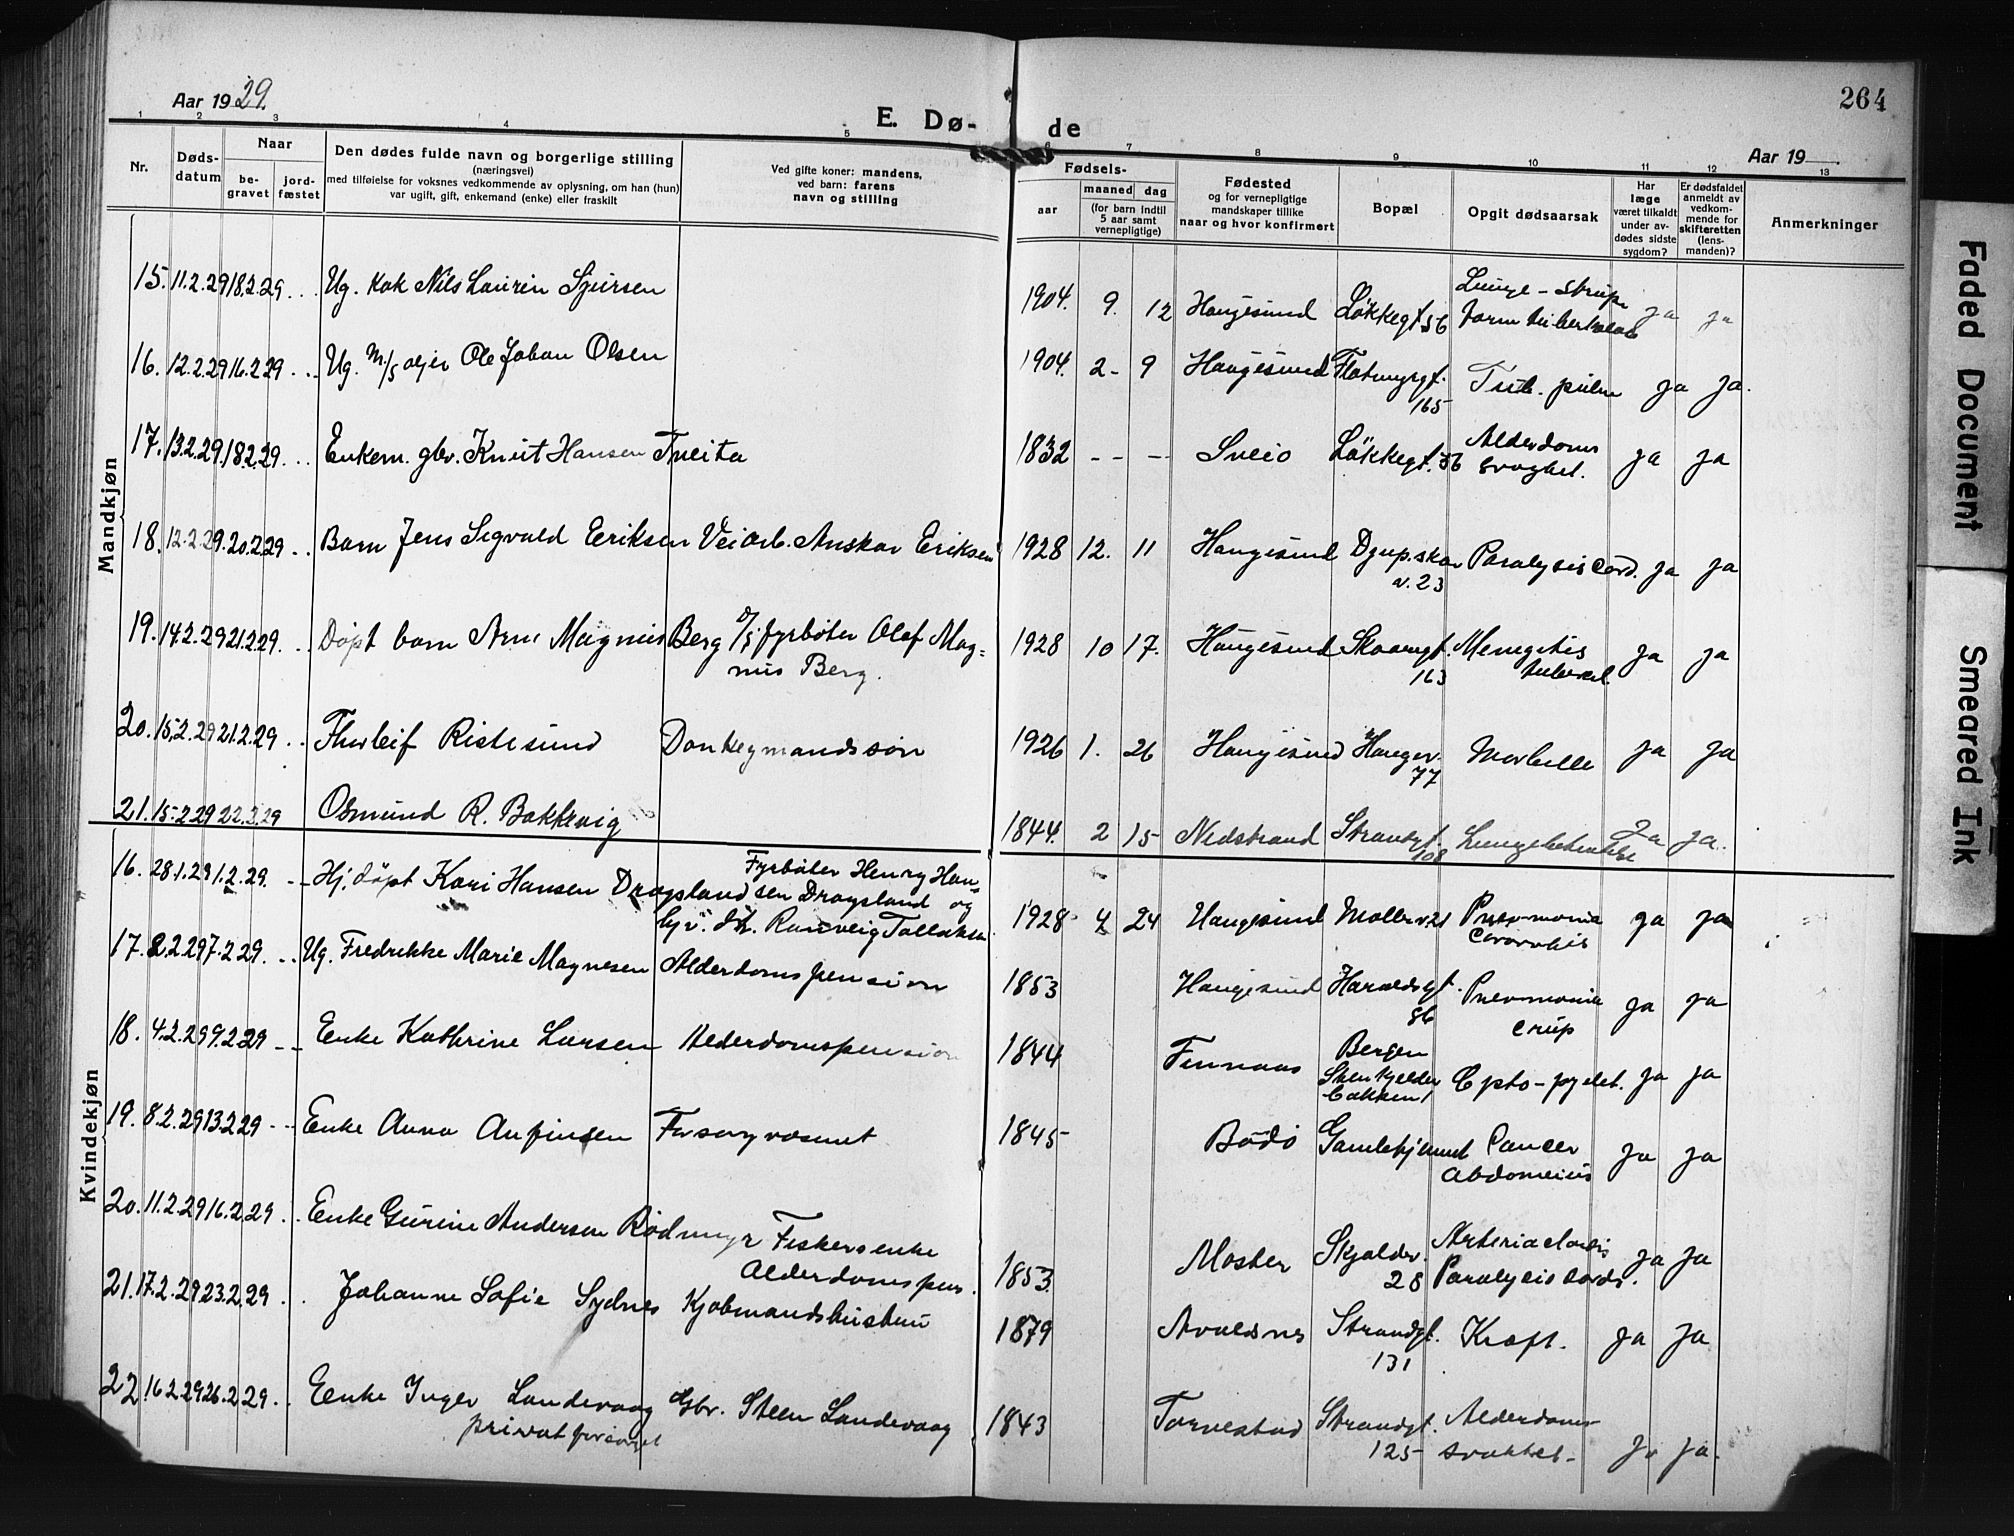 Aar 1929.
E. Dø-
de
264
Aar 19
1 2 3 4 5 6 7 8 9 10 11 12 13
Nr.
Døds-
datum
Naar
be-
gravet
jord-
fæstet
Den dødes fulde navn og borgerlige stilling
(næringsvei)
med tilføielse for voksnes vedkommende av oplysning, om han (hun)
var ugift, gift, enkemand (enke) eller fraskilt
Ved gifte koner: mandens,
ved barn: farens
navn og stilling
Fødsels-
aar
maaned dag
(for barn indtil
5 aar samt
vernepligtige)
Fødested
og for vernepligtige
mandskaper tillike
naar og hvor konfirmert
Bopæl
Opgit dødsaarsak
Har
læge
været tilkaldt
under av-
dødes sidste
sygdom?
Er dødsfaldet
anmeldt av
vedkom-
mende for
skifteretten
(lens-
manden)?
Anmerkninger
Mandkjøn
15. 11.2.29 18.2.29 Ug. kok Nils Laurin Sjursen 1904. 9. 12 Haugesund Løkkegt 56 Lunge - strupe tarm tuberkulose ja ja
16. 12.2.29 16.2.29 Ug. m/s oljer Ole Johan Olsen 1904. 2 - 9 Haugesund Flotmyrgt. 165 Tub. pulm ja ja.
17. 13.2.29 18.2.29 Enkem. gbr. Knut Hansen Tveita 1832 -- -- Sveio Løkkegt. 56 Alderdoms svaghet. ja ja
18. 12.2.29. 20.2.29 Barn Jens Sigvald Eriksen Veiarb. Anskar Eriksen 1928 12. 11 Haugesund Djup.skar v. 23 Paralysis cord. ja ja
19. 14.2.29 21.2.29. Døpt barn Arne Magnus Berg d/s fyrbøter Olaf Mag= nus Berg. 1928 10 17. Haugesund Skaaregt. 163 Menegitis tubercul. ja ja
20. 15.2.29 21.2.29 Thorleif Ristesund Donkeymandssøn 1926 1. 26 Haugesund Haugev. 77 Morbille ja ja
21. 15.2.29 22.2.29 Osmund R. Bakkevig 1844. 2 15 Nedstrand Strandgt. 108 Lungebetendelse Ja ja.
Kvindekjøn
16. 28.1.29 1.2.29. Hj. døpt Kari Hansen Dragsland Fyrbøter Henry Han= sen Dragsland og hjv. Ranveig Tollaksen 1928 4 24 Haugesund Møllerv. 21 Pnevmonia ja ja
17. 2.2.29 7.2.29. Ug. Fredrikke Marie Magnesen Alderdomspension 1853 Haugesund Haraldsgt. 86 Pnevmonia crup ja ja
18. 4.2.29 9.2.29 Enke Kathrine Larsen Alderdomspension 1844 Finnaas Bergen Stenkjelder bakken 1 Cysto-pyelet. ja ja
19. 8.2.29 13.2.29 Enke Anna Anfinsen Forsørgvæsenet 1845 Bodø Gamlehjemmet Cancer abdominis ja ja
20. 11.2.29 16.2.29 Enke Gurine Andersen Rødmyr Fiskersenke Alderdomspen. 1853. Moster Skjoldev. 28 Paralysis cordis. ja ja
21. 17.2.29 23.2.29 Johanne Sofie Sydnes Kjøbmandshustru 1879 Avaldsnes Strandgt. 131 Kræft. ja ja
22. 16.2.29 26.2.29. Enke Inger Landevaag privat forsørget Gbr. Steen Landevaag 1843 Torvestad Strandgt. 125 Alderdoms svakhet. ja ja.
Faded Document
Smeared Ink